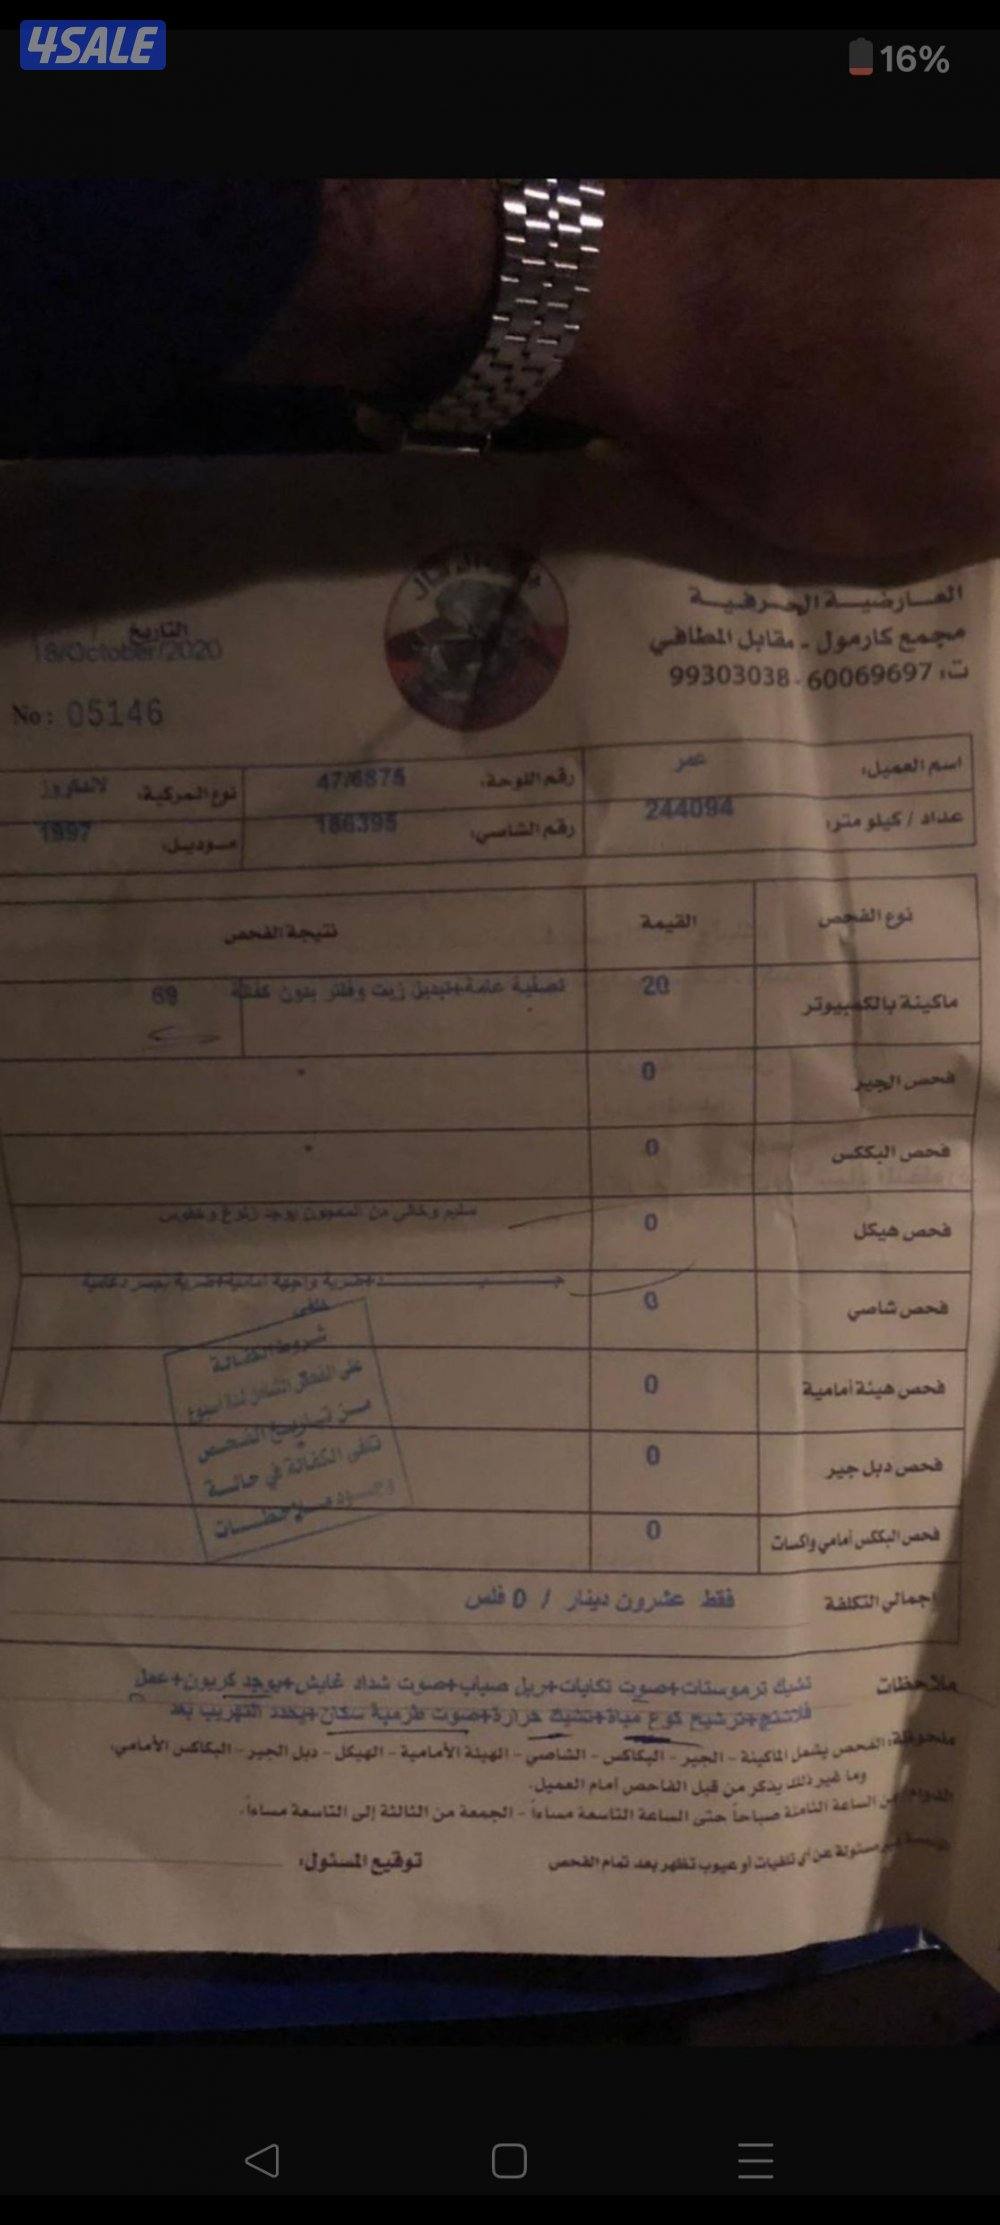 4SALE
16%
العارضية الحرفية
مجمع كارمول - مقابل المطافي
ت: 60069697 - 99303038
التاريخ
18/October/2020
No: 05146
اسم العميل: عمر
رقم اللوحة: 47/6875
نوع المركبة: لاندكروز
عداد / كيلو متر: 244094
رقم الشاصي: 186395
موديل: 1997
نوع الفحص القيمة نتيجة الفحص
ماكينة بالكمبيوتر 20 تصفية عامة+تبديل زيت وفلتر بدون كفالة 69
فحص الجير 0
فحص البككس 0
فحص هيكل 0 سليم وخالي من المعجون يوجد زلوغ وعفوس
فحص شاصي 0 +ضربة واجهة أمامية+ضربة بجسر دعامية
خلفي
فحص هيئة أمامية 0
فحص دبل جير 0
فحص البككس أمامي واكسات 0
شروط الكفالة
من تاريخ الفحص
تلغى الكفالة في حالة
وجود ملاحظات
إجمالي التكلفة فقط عشرون دينار / 0 فلس
ملاحظات تشيك ترموستات+صوت تكايات+ربل صباب+صوت شداد قايش+يوجد كربون+عمل
فلاشنج+ترشيح كوع مياة+تشيك حرارة+صوت طرمبة سكان+يحدد التهريب بعد
ملحوظة: الفحص يشمل الماكينة - الجير - البكاكس - الشاصي - الهيئة الأمامية - الهيكل - دبل الجير - البكاكس الأمامي.
وما غير ذلك يذكر من قبل الفاحص أمام العميل.
الدوام: من الساعة الثامنة صباحاً حتى الساعة التاسعة مساءاً - الجمعة من الثالثة إلى التاسعة مساءاً.
غير مسئولة عن أي تلفيات أو عيوب تظهر بعد تمام الفحص
توقيع المسئول: